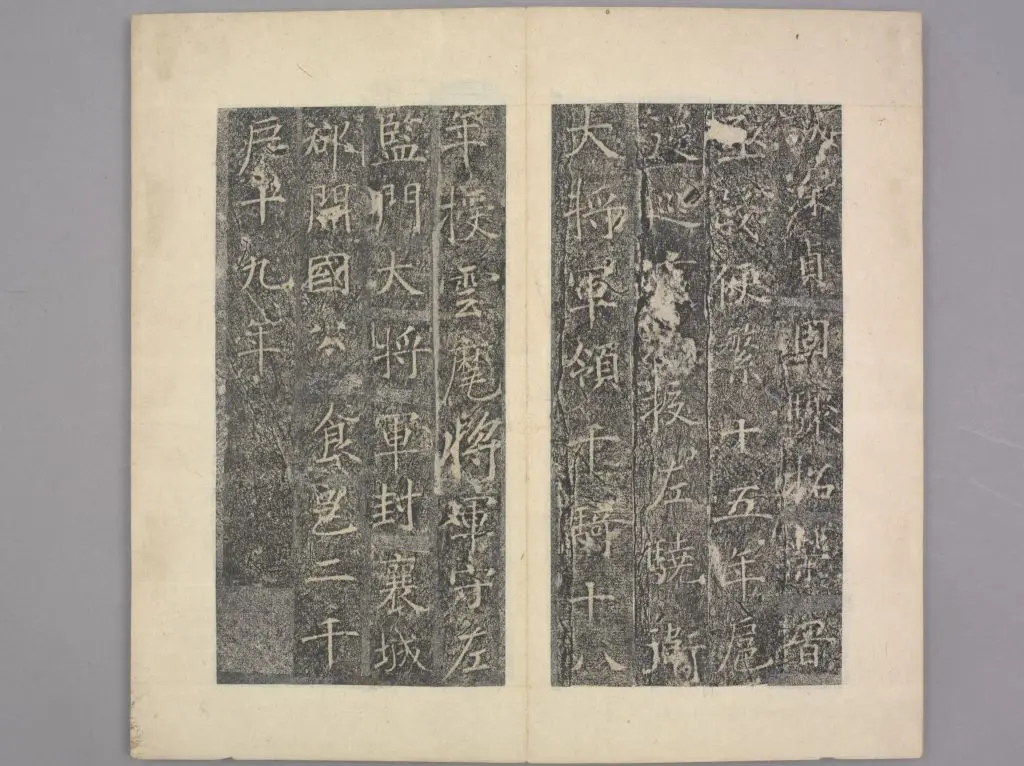 深貞固署
便繁十五年扈
從巡授左驍衛
大將軍領千騎十八
年授雲麾將軍守左
監門大將軍封襄城
郡開國公食邑二千
戶十九年